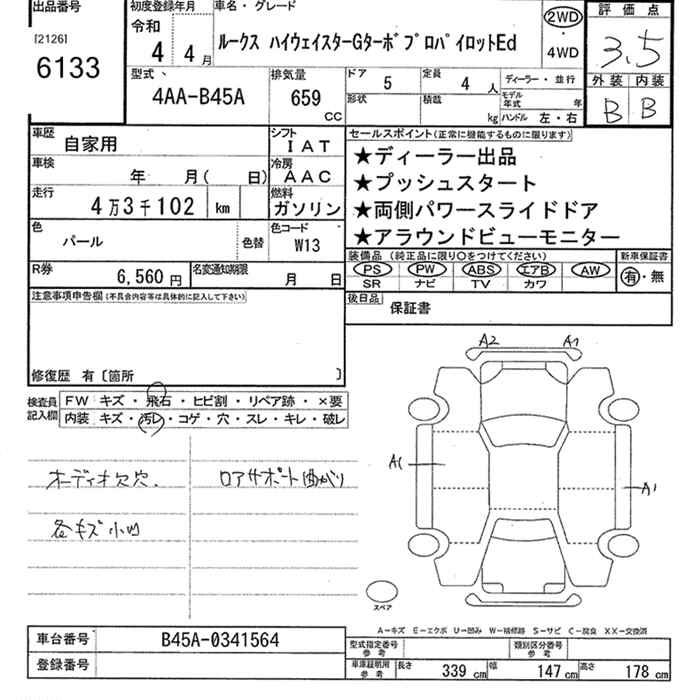 出品番号
[2126]
6133
初度登録年月
令和
4 4月
車名・グレード
ルークス ハイウェイスターGターボプロパイロットEd
2WD
・
4WD
評価点
3.5
外装 内装
B B
型式
4AA-B45A
排気量
659
CC
ドア 5
定員 4 人
形状
積載 kg
ディーラー・並行
モデル年式 年
ハンドル 左・右
車歴 自家用
シフト IAT
車検 年 月( 日)
冷房 AAC
走行 4万3千102 km
燃料 ガソリン
色 パール
色替
色コード W13
R券 6,560円
名変通知期限 月 日
セールスポイント(正常に機能するものに限ります)
★ディーラー出品
★プッシュスタート
★両側パワースライドドア
★アラウンドビューモニター
装備品(純正品に限り○をつけてください)
PS PW ABS エアB AW
SR ナビ TV カワ
新車保証書
有・無
後日品
保証書
注意事項申告欄(不具合内容等は具体的に記入して下さい)
修復歴 有〔箇所 〕
検査員記入欄
FW キズ・飛石・ヒビ割・リペア跡・×要
内装 キズ・汚レ・コゲ・穴・スレ・キレ・破レ
オーディオ欠穴.
ロアサポート曲がり
各キズ小凹
A2 A1
A1
A1
スペア
A-キズ E-エクボ U-凹み W-補修跡 S-サビ C-腐食 XX-交換済
車台番号 B45A-0341564
登録番号
型式指定番号参考
類別区分番号参考
車庫証明用参考
長さ 339 cm
幅 147 cm
高さ 178 cm